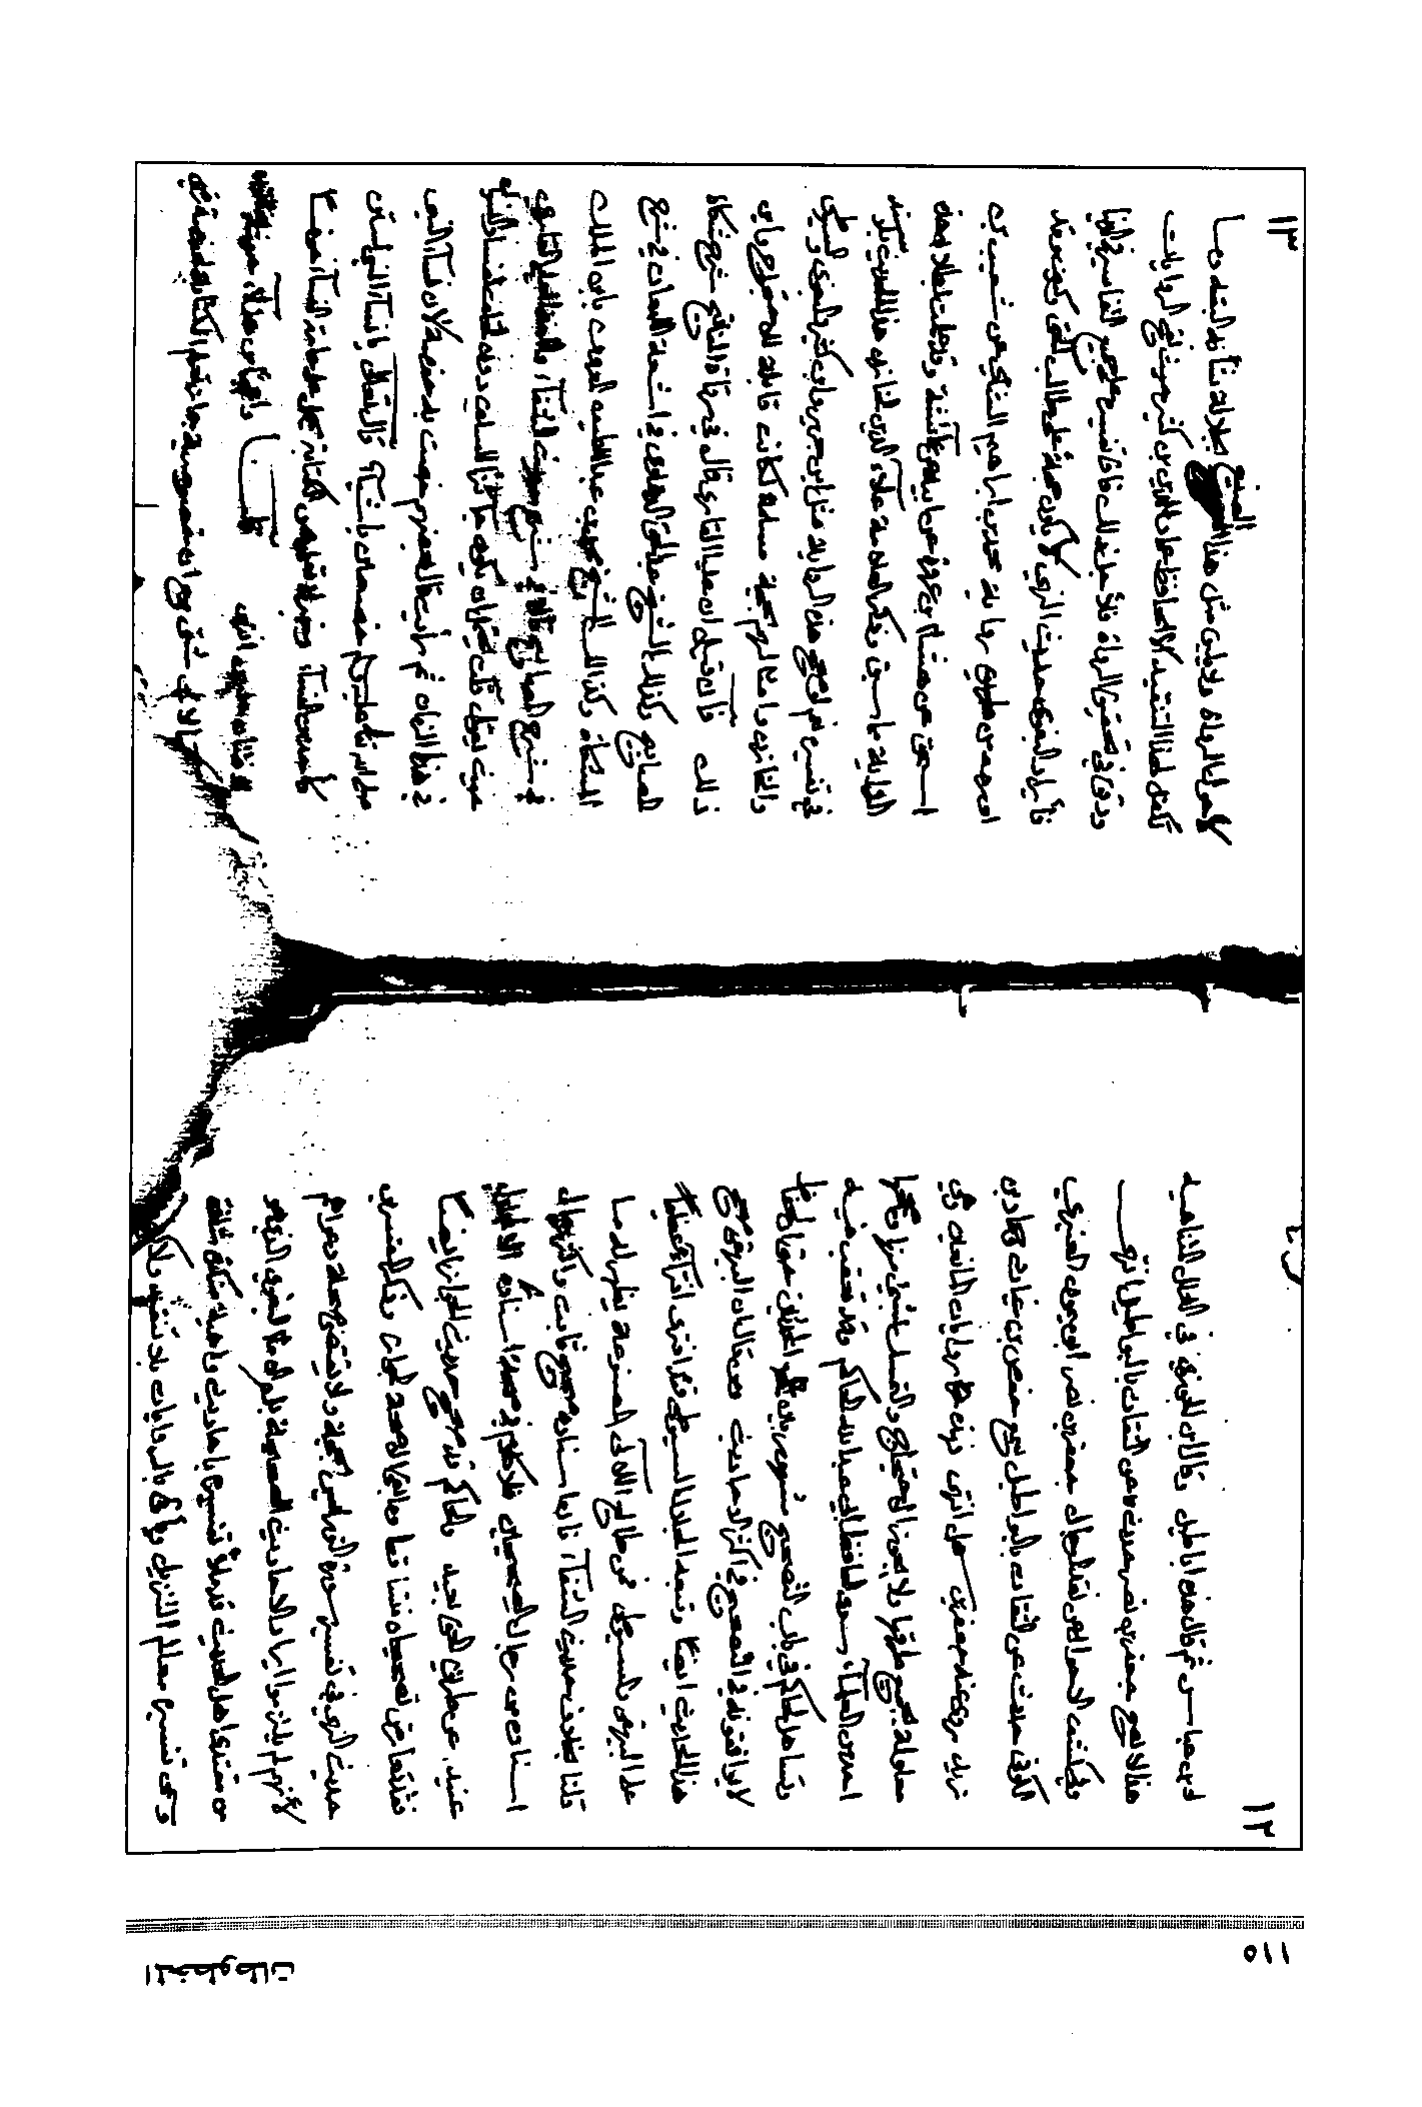 ١٢
لدى عباس ثم قال هذه اباطيل وقال ابن الجوزي في العلل المتناهية
هذا لا يصح جعفر بن نصر حدث عن الثقات بالبواطيل انتهى
وفي كشف الاحوال في نقد الرجال جعفر بن نصر ابو ميمون العنبري
الكوفي حدث عن الثقات بالبواطيل حفص بن غياث وحماد بن
زيد روى عنه جعفر بن سهل انتهى روايات المانعين وهي
معلولة بجميع طرقها ولا يجوز الاحتجاج والتمسك بشيئ منها وصححها
احد من العلمآء سوى الحافظ ابي عبد الله الحاكم وقد تعقب عليه
وتساهل الحاكم في باب التصحيح مشهور بين المحدثين حتى ان الحفاظ
لا يوافقونه في التصحيح في اكثر الاحاديث قال ان البيهقي صحح
هذا الحديث ايضا وتبعه الجلال السيوطي فقد افترى افترآء عظيما
على البيهقي والسيوطي فمن طالع اللآلى المصنوعة يظهر له ما
قلنا بخلاف حديث الشفآء فانها اسناده صحيح ثابت واكثر رجال
اسناده من رجال الصحيحين فلا كلام في صحة اسناده الا لجاهل
عنيد عن طريق الحق بعيد والحاكم قد صحح حديث الجواز ايضا
فتعارض تصحيحاه فتساقطا وبقي الصحة لجواز وذكر المفسرين
حديث النهي في تفسير سورة النور ليس بحجة ولا يقتضي صحته
لانهم لم يلتزموا ايراد الاحاديث الصحيحة مثلا البغوي الذي هو
من مقتدى اهل الحديث قد ملأ تفسيره باحاديث واهية منكرة شاذة
وسمى تفسيره معالم التنزيل ويأتي بالروايات بلا تنقيد ولا
١٣
لأحوال الرواة ولا يليق مثل هذا الصنيع بجلالة شأنه البتة وما
تكفل لهذا التنقيد الا الحافظ عماد الدين بن كثير حيث نقح الروايات
ودقق في تحقيق الرواة فلأجل ذلك فاق تفسيره على جميع التفاسير في الدنيا
فايراد البغوي حديث النهي لا يكون حجة على طالب الحق وكيف عند
اورده من طريق رواية محمد بن ابراهيم الشامي عن شعيب بن
اسحق عن هشام بن عروة عن ابيه عن عآئشة وقد علمت بطلان هذه
الرواية ما سبق وذكر العلامة علآء الدين الخازن هذا الحديث بدون سند
في تفسيره نعم لو صحح هذه الرواية مثل ابن جرير وابن كثير والبغوي والسيوطي
والخازن وامثالهم لحجة مسلمة لكانت قابلة للاحتجاج وأين
ذلك فان قيل ان عليا القاري قال في مرقاة المفاتيح شرح مشكاة
المصابيح وكذلك الشيخ عبد الحق الدهلوي في اشعة اللمعات في شرح
المشكاة وكذلك الشيخ محمد بن عبد اللطيف المعروف بابن الملك
في شرح المصابيح في شرح حديث الشفآء القاري
حيث يقول قلت يحتمل ان يكون جائزا للسلف دون الخلف لفساد النسوان
في هذا الزمان ثم رأيت قال بعضهم خصت به حفصة لان نسآء النبي
صلى الله عليه وسلم خصصن باشيآء قال تعالى يا نسآء النبي لستن
كأحد من النسآء وخبر لا تعلموهن الكتابة يحمل على عامة النسآء خوفا
عليهن انتهى
١١٥
المخطوطات